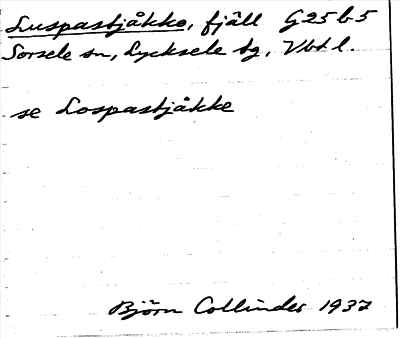 Luspastjåkko, fjäll G25b5
Sorsele sn, Lycksele tg, Vbtl.
se Lospastjåkke
Björn Collinder 1937